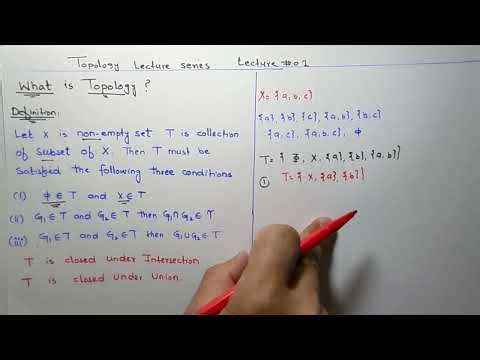 Topology Lecture series Lecture #01
What is Topology?
Definition:
Let X is non-empty set T is collection
of Subset of X. Then T must be
Satisfied the following three conditions
(i) ϕ ∈ T and X ∈ T
(ii) G₁ ∈ T and G₂ ∈ T then G₁ ∩ G₂ ∈ T
(iii) G₁ ∈ T and G₂ ∈ T then G₁ ∪ G₂ ∈ T
T is closed under Intersection
T is closed under Union.
X = {a, b, c}
{a}, {b}, {c}, {a, b}, {b, c}
{a, c}, {a, b, c}, ϕ
T = { Φ, X, {a}, {b}, {a, b}}
① T = { X, {a}, {b}}